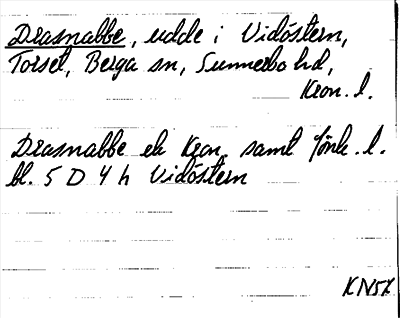 Drasnabbe, udde i Vidöstern,
Torset, Berga sn, Sunnerbo hd,
Kron. l.
Drasnabbe ek Kron. samt Jönk. l.
bl. 5 D 4 h Vidöstern
KN57